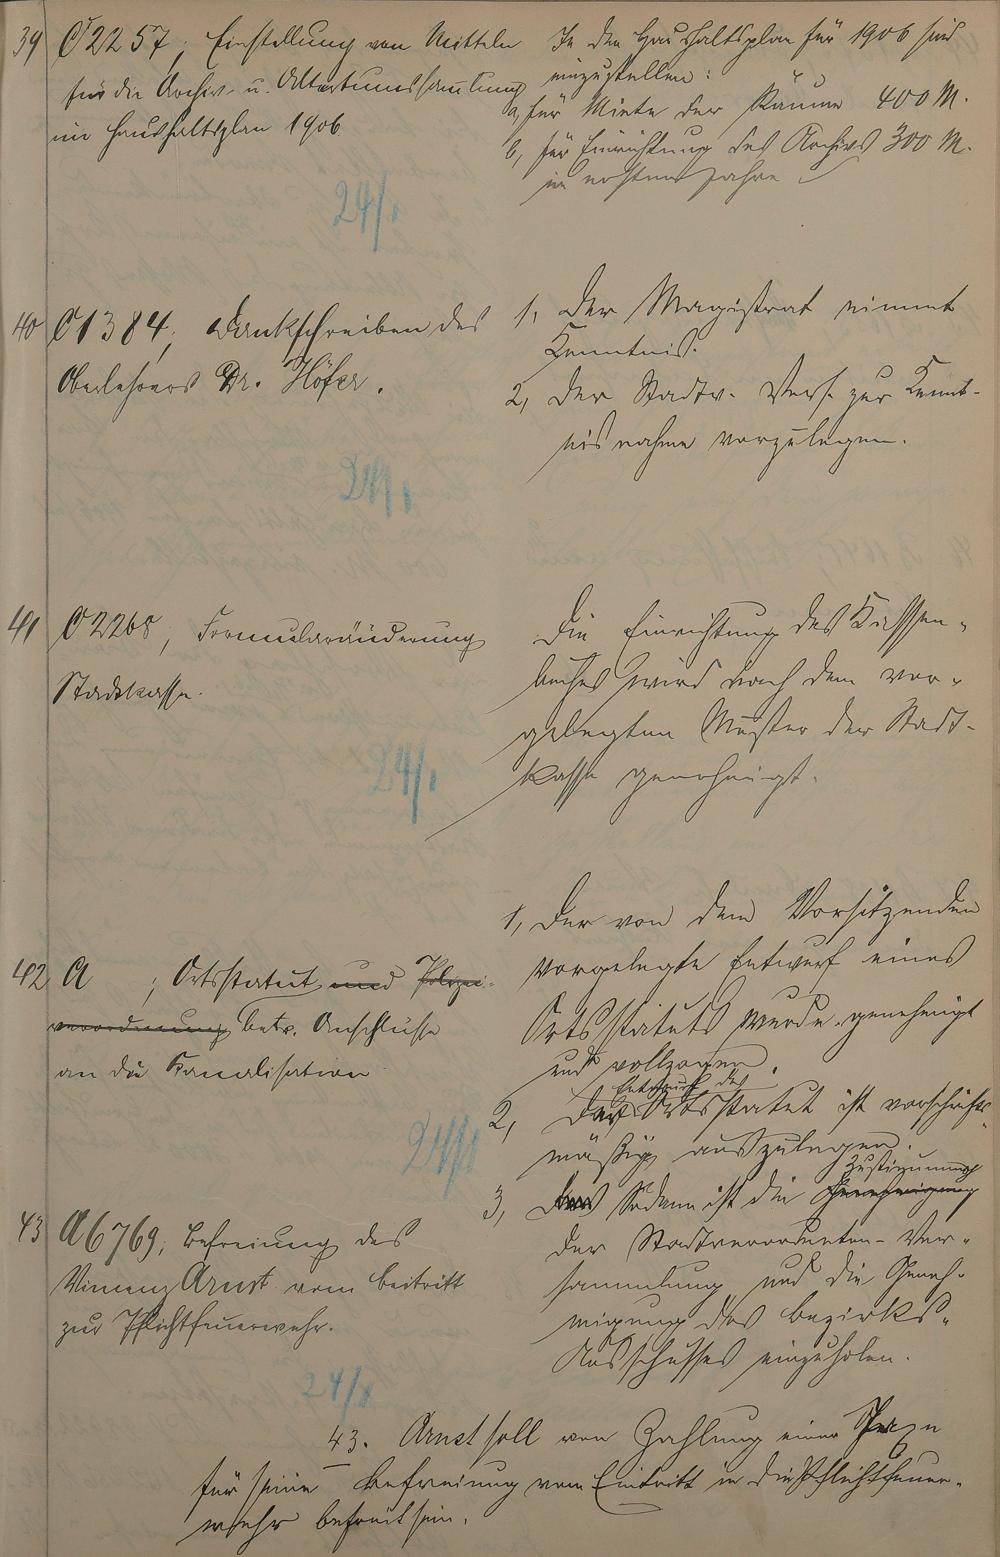 39 C 2257, Einstellung von Mitteln
für die Archiv- u. Altertumssammlung
im Haushaltsplan 1906
In den Haushaltsplan für 1906 sind
einzustellen:
a, für Miete der Räume 400 M.
b, für Einrichtung des Archivs 300 M.
im ersten Jahre
24/1
40 C 1384, Dankschreiben des
Oberlehrers Dr. Höfer.
1, Der Magistrat nimmt
Kenntnis.
2, Der Stadtv. Vers. zur Kennt-
nisnahme vorzulegen.
24/1
41 C 2268, Formularänderung
Stadtkasse.
Die Einrichtung des Kassen-
buches wird nach dem vor-
gelegten Muster der Stadt-
kasse genehmigt.
24/1
42 A ; Ortsstatut und Polizei-
verordnung betr. Anschlüsse
an die Kanalisation
1, Der von dem Vorsitzenden
vorgelegte Entwurf eines
Ortsstatuts wurde genehmigt
und vollzogen.
Entwurf des
2, Das Ortsstatut ist vorschrifts-
mäßig auszulegen.
Zustimmung
3, Sodann ist die Genehmigung
der Stadtverordneten-Ver-
sammlung und die Geneh-
migung des Bezirks-
Ausschusses einzuholen.
24/1
43 A 6769, Befreiung des
Vincenz Arnst vom Beitritt
zur Pflichtfeuerwehr.
24/1
43. Arnst soll von Zahlung einer
für seine Befreiung vom Eintritt in die Pflichtfeuer-
wehr befreit sein.